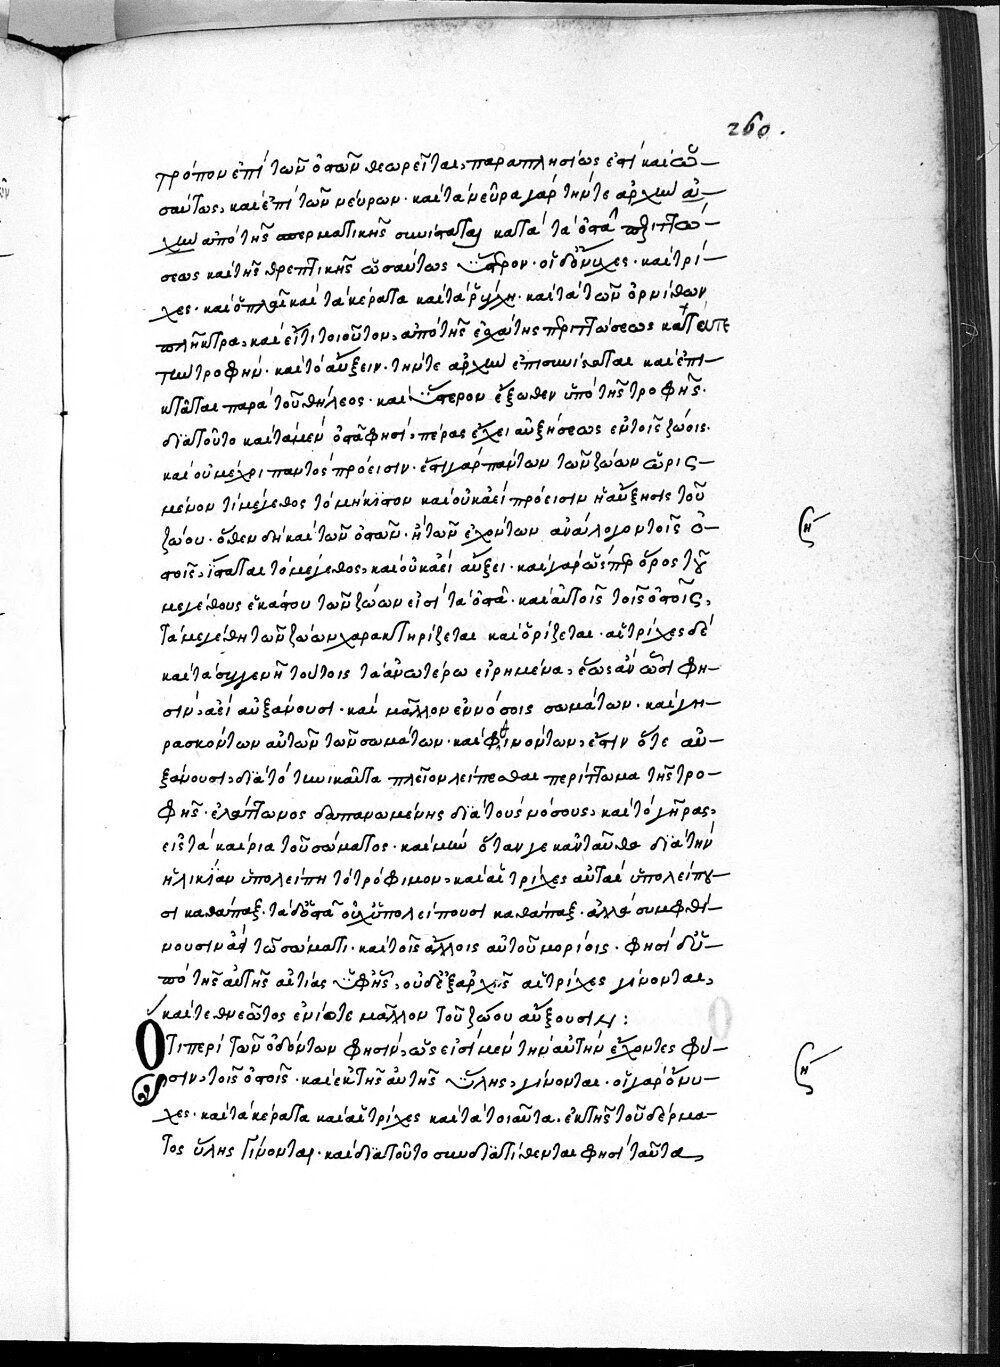 260.
τρόπον ἐπὶ τῶν ὀστῶν θεωρεῖται, παραπλησίως ἐστὶ καὶ ὡ-
σαύτως, καὶ ἐπὶ τῶν νεύρων· καὶ τὰ νεῦρα γὰρ τήν τε ἀρχὴν
ἀπὸ τῆς σπερματικῆς συνίσταται κατὰ τὰ ὀστᾶ περιττώ-
σεως καὶ τῆς θρεπτικῆς ὡσαύτως ὕστερον· οἱ δὲ ὄνυχες· καὶ τρί-
χες· καὶ ὁπλαὶ καὶ τὰ κέρατα καὶ τὰ ῥύγχη· καὶ τὰ τῶν ὀρνίθων
πλῆκτρα, καὶ εἴ τι τοιοῦτον, ἀπὸ τῆς ἐσχάτης περιττώσεως
τὴν τροφήν· καὶ τὸ αὔξειν· τήν τε ἀρχὴν ἐπισυνίσταται καὶ ἐπι-
κτᾶται παρὰ τοῦ θήλεος· καὶ ὕστερον ἔξωθεν ὑπὸ τῆς τροφῆς·
διὰ τοῦτο καὶ τὰ μὲν ὀστᾶ φησὶ, πέρας ἔχει αὐξήσεως ἐν τοῖς ζώοις·
καὶ οὐ μέχρι παντὸς πρόεισιν· ἔστι γὰρ πάντων τῶν ζώων ὡρισ-
μένον τι μέγεθος τὸ μήκιστον καὶ οὐκ ἀεὶ πρόεισιν ἡ αὔξησις τοῦ
ζώου· ὅθεν δὴ καὶ τῶν ὀστῶν· ἢ τῶν ἐχόντων ἀνάλογον τοῖς ὀ-
στοῖς, ἵσταται τὸ μέγεθος, καὶ οὐκ ἀεὶ αὔξει· καὶ γὰρ ὥσπερ ὅρος τοῦ
μεγέθους ἑκάστου τῶν ζώων εἰσὶ τὰ ὀστᾶ· καὶ αὐτοῖς τοῖς ὀστοῖς,
τὰ μεγέθη τῶν ζώων χαρακτηρίζεται καὶ ὁρίζεται· αἱ τρίχες δὲ
καὶ τὰ συγγενῆ τούτοις τὰ ἀνωτέρω εἰρημένα, ἕως ἂν ὦσι φη-
σὶν, ἀεὶ αὐξάνουσι· καὶ μᾶλλον ἐν νόσοις σωμάτων· καὶ γη-
ρασκόντων αὐτῶν τῶν σωμάτων· καὶ φθινόντων, ἔστιν ὅτε αὐ-
ξάνουσι, διὰ τὸ τηνικαῦτα πλεῖον λείπεσθαι περίττωμα τῆς τρο-
φῆς· ἐλάττωνος δαπανωμένης διὰ τοὺς νόσους, καὶ τὸ γῆρας,
εἰς τὰ καίρια τοῦ σώματος· καὶ μὴν ὅταν γε κἀνταῦθα διὰ τὴν
ἡλικίαν ὑπολείπῃ τὸ τρόφιμον, καὶ αἱ τρίχες αὐταὶ ὑπολείπου-
σι καθάπαξ· τὰ δὲ ὀστᾶ οὐχ ὑπολείπουσι καθάπαξ· ἀλλὰ συμφθί-
νουσιν τῷ σώματι· καὶ τοῖς ἄλλοις αὐτοῦ μορίοις· φησὶ δὲ ὑ-
πὸ τῆς αὐτῆς αἰτίας οὐδὲ ἐξ ἀρχῆς αἱ τρίχες γίνονται,
καὶ τεθνεῶτος ἐνίοτε μᾶλλον τοῦ ζώου αὔξουσιν:
Ὅτι περὶ τῶν ὀδόντων φησὶν, ὡς εἰσὶ μὲν τὴν αὐτὴν ἔχοντες φύ-
σιν, τοῖς ὀστοῖς· καὶ ἐκ τῆς αὐτῆς ὕλης, γίνονται· οἱ γὰρ ὄνυ-
χες· καὶ τὰ κέρατα καὶ αἱ τρίχες καὶ τὰ τοιαῦτα· ἐκ τῆς τοῦ δέρμα-
τος ὕλης γίνονται· καὶ διὰ τοῦτο συνδιατίθενται φησὶ ταῦτα,